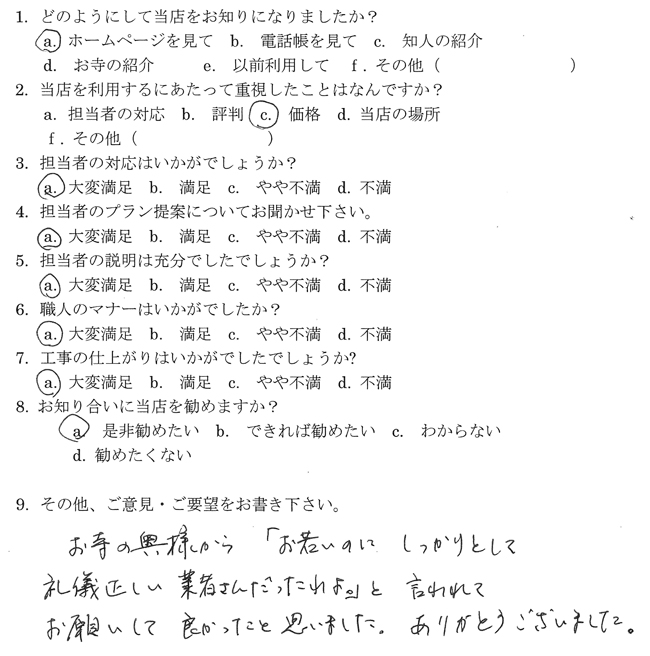 1. どのようにして当店をお知りになりましたか？
a. ホームページを見て b. 電話帳を見て c. 知人の紹介
d. お寺の紹介 e. 以前利用して f. その他（ ）
2. 当店を利用するにあたって重視したことはなんですか？
a. 担当者の対応 b. 評判 c. 価格 d. 当店の場所
f. その他（ ）
3. 担当者の対応はいかがでしょうか？
a. 大変満足 b. 満足 c. やや不満 d. 不満
4. 担当者のプラン提案についてお聞かせ下さい。
a. 大変満足 b. 満足 c. やや不満 d. 不満
5. 担当者の説明は充分でしたでしょうか？
a. 大変満足 b. 満足 c. やや不満 d. 不満
6. 職人のマナーはいかがでしたか？
a. 大変満足 b. 満足 c. やや不満 d. 不満
7. 工事の仕上がりはいかがでしたでしょうか?
a. 大変満足 b. 満足 c. やや不満 d. 不満
8. お知り合いに当店を勧めますか？
a. 是非勧めたい b. できれば勧めたい c. わからない
d. 勧めたくない
9. その他、ご意見・ご要望をお書き下さい。
お寺の奥様から「お若いのに しっかりとして
礼儀正しい 業者さんだったわよ。」と 言われて
お願いして 良かったこと 思いました。ありがとうございました。